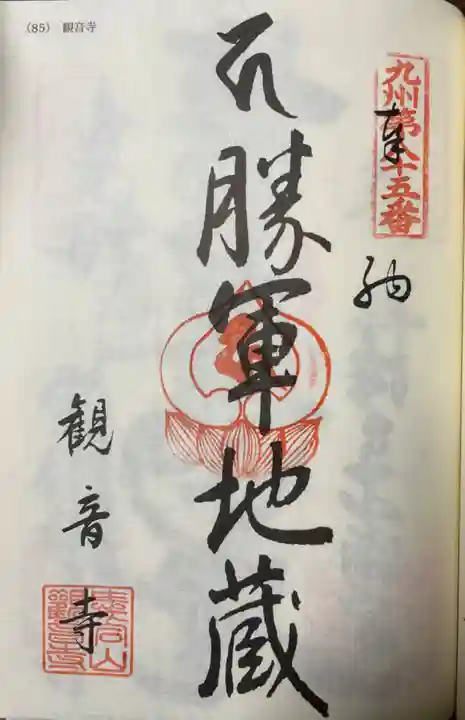 （85） 観音寺
九州第八十五番
奉納
勝軍地蔵
観音寺